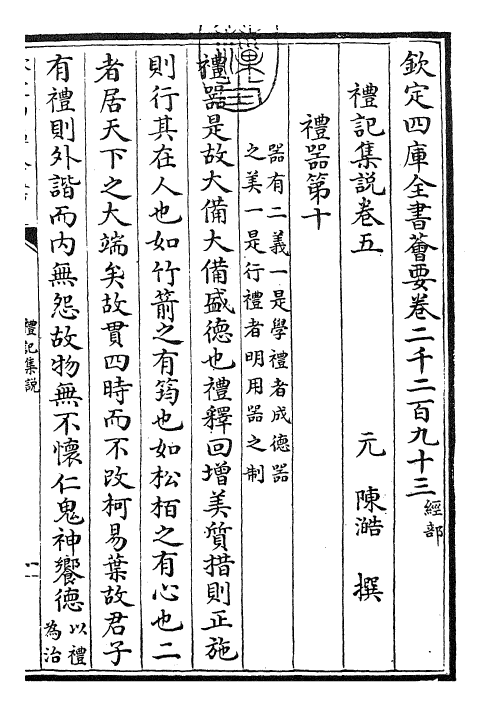 欽定四庫全書薈要卷二千二百九十三 經部
禮記集説卷五
元 陳澔 撰
禮器第十
器有二義一是學禮者成德器
之美一是行禮者明用器之制
禮器是故大備大備盛德也禮釋回增美質措則正施
則行其在人也如竹箭之有筠也如松栢之有心也二
者居天下之大端矣故貫四時而不改柯易葉故君子
有禮則外諧而内無怨故物無不懷仁鬼神饗德 以禮
為治
禮記集説
一